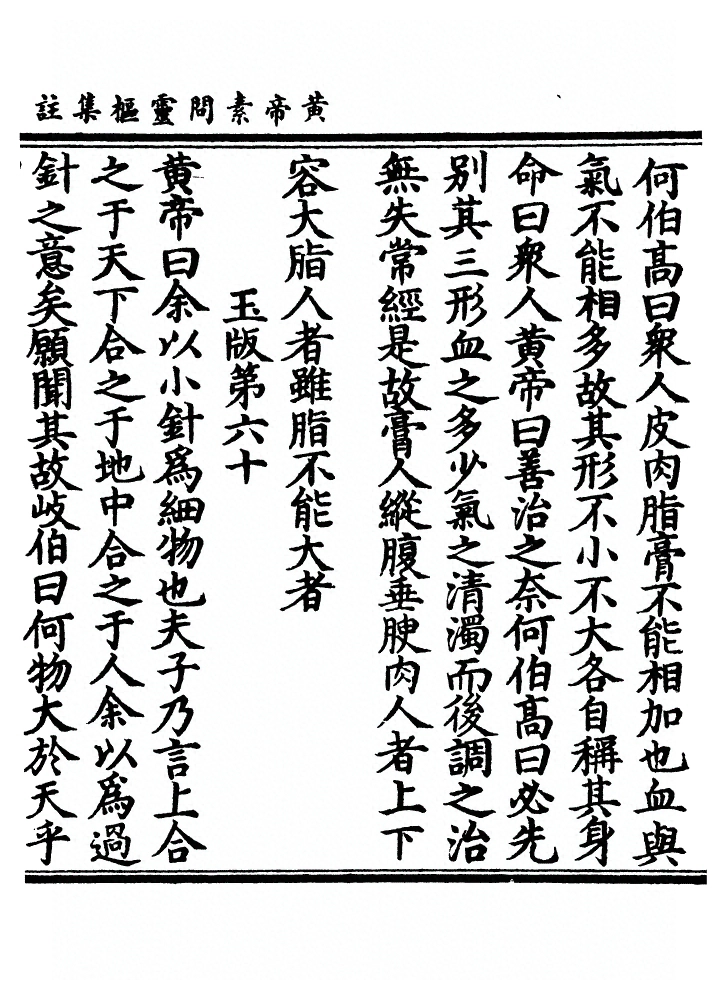 黃帝素問靈樞集註
何伯高曰衆人皮肉脂膏不能相加也血與
氣不能相多故其形不小不大各自稱其身
命曰衆人黃帝曰善治之奈何伯高曰必先
别其三形血之多少氣之清濁而後調之治
無失常經是故膏人縱腹垂腴肉人者上下
容大脂人者雖脂不能大者
玉版第六十
黃帝曰余以小針爲細物也夫子乃言上合
之于天下合之于地中合之于人余以爲過
針之意矣願聞其故岐伯曰何物大於天乎